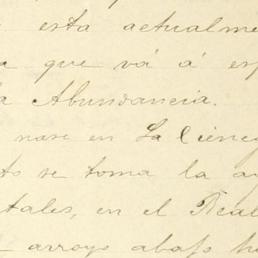 esta actualme
que vá á es
la Abundancia.
nase en La Cieneg
se toma la a
tales, en el Real
arroyo abajo h